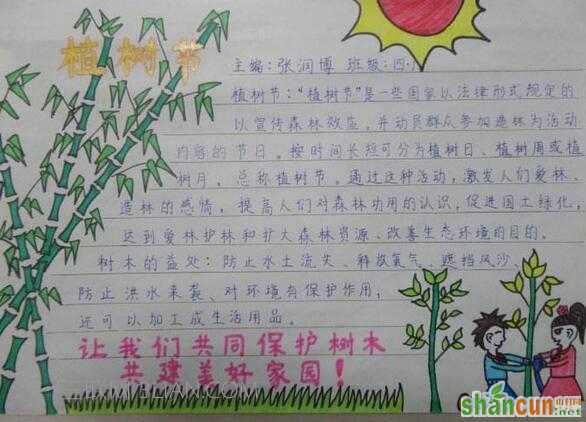 植树节
主编:张润博 班级:四.1
植树节:“植树节”是一些国家以法律形式规定的
以宣传森林效益,并动员群众参加造林为活动
内容的节日。按时间长短可分为植树日、植树周或植
树月,总称植树节。通过这种活动,激发人们爱林、
造林的感情,提高人们对森林功用的认识,促进国土绿化,
达到爱林护林和扩大森林资源、改善生态环境的目的。
树木的益处:防止水土流失、释放氧气、遮挡风沙、
防止洪水来袭、对环境有保护作用,
还可以加工成生活用品。
让我们共同保护树木
共建美好家园!
shancun
.net